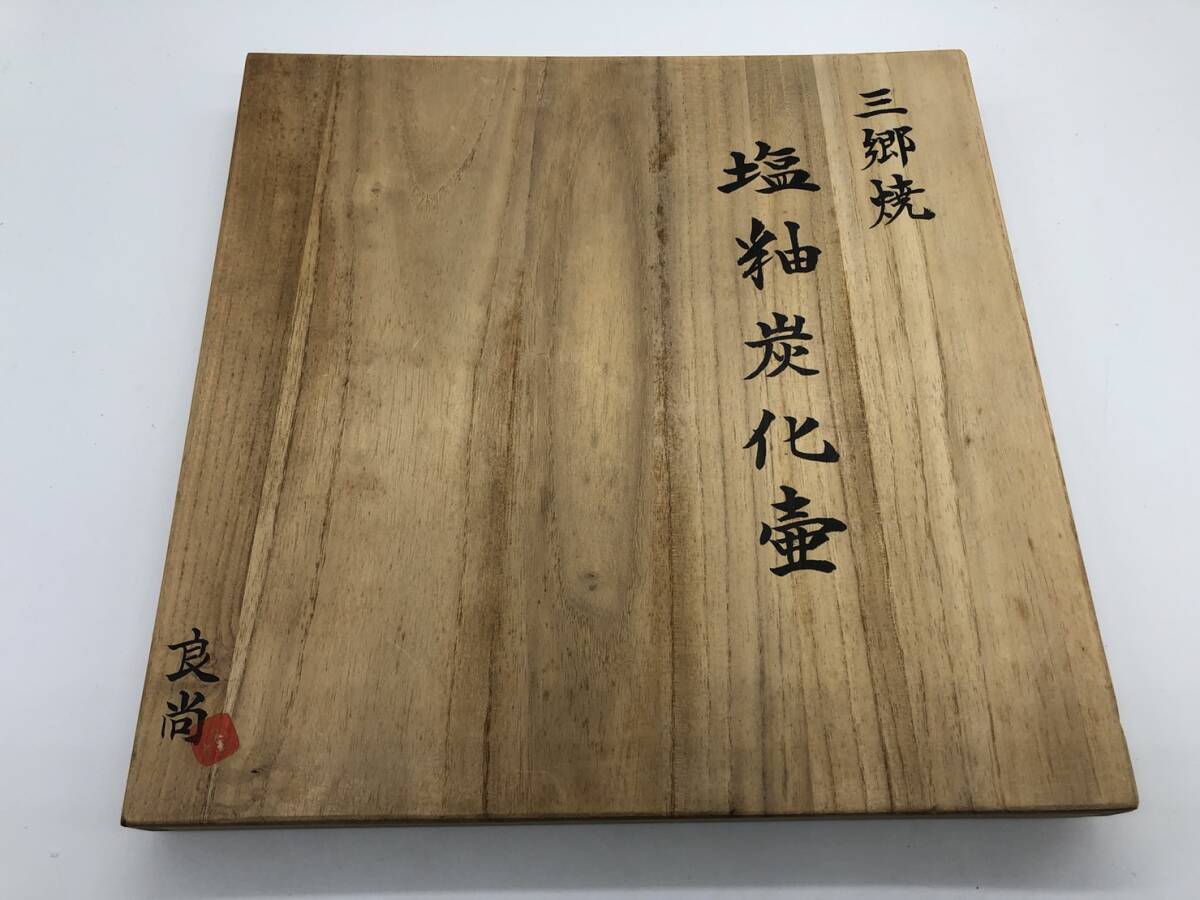 三郷焼
塩釉炭化壷
良尚